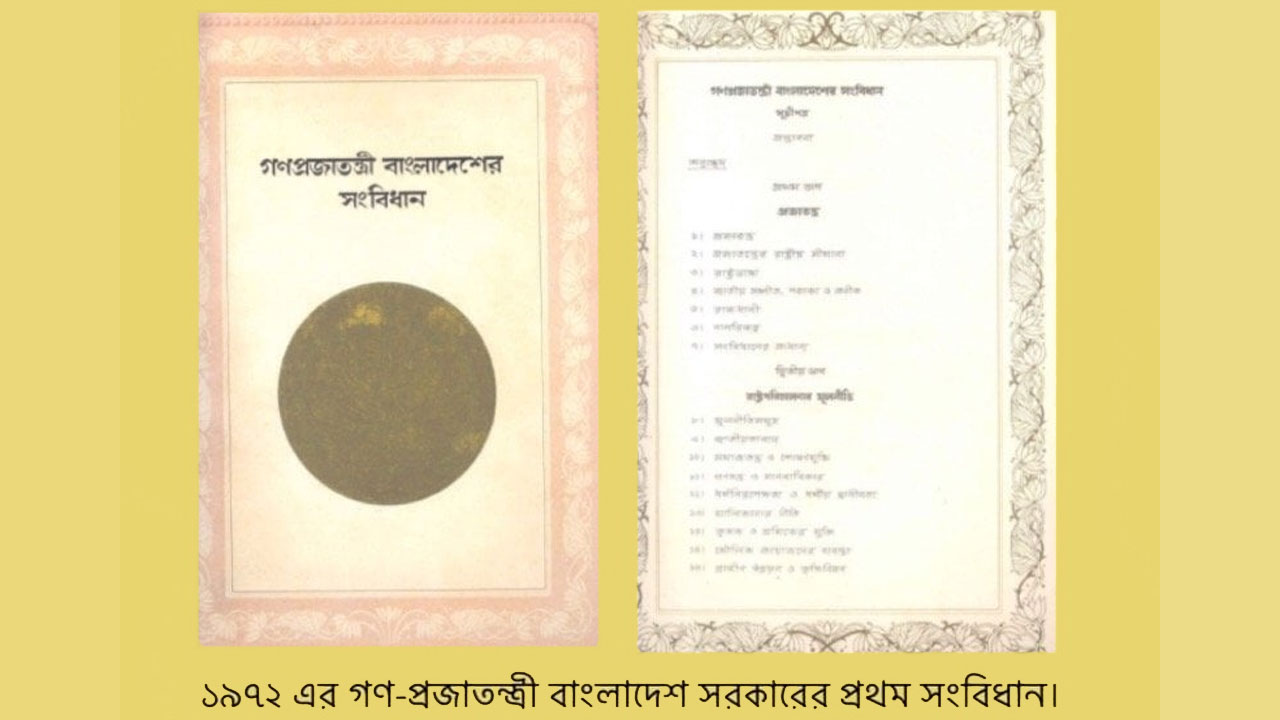 গণপ্রজাতন্ত্রী বাংলাদেশের
সংবিধান
গণপ্রজাতন্ত্রী বাংলাদেশের সংবিধান
সূচীপত্র
প্রস্তাবনা
অনুচ্ছেদ
প্রথম ভাগ
প্রজাতন্ত্র
১। প্রজাতন্ত্র
২। প্রজাতন্ত্রের রাষ্ট্রীয় সীমানা
৩। রাষ্ট্রভাষা
৪। জাতীয় সঙ্গীত, পতাকা ও প্রতীক
৫। রাজধানী
৬। নাগরিকত্ব
৭। সংবিধানের প্রাধান্য
দ্বিতীয় ভাগ
রাষ্ট্রপরিচালনার মূলনীতি
৮। মূলনীতিসমূহ
৯। জাতীয়তাবাদ
১০। সমাজতন্ত্র ও শোষণমুক্তি
১১। গণতন্ত্র ও মানবাধিকার
১২। ধর্মনিরপেক্ষতা ও ধর্মীয় স্বাধীনতা
১৩। মালিকানার নীতি
১৪। কৃষক ও শ্রমিকের মুক্তি
১৫। মৌলিক প্রয়োজনের ব্যবস্থা
১৬। গ্রামীণ উন্নয়ন ও কৃষিবিপ্লব
১৯৭২ এর গণ-প্রজাতন্ত্রী বাংলাদেশ সরকারের প্রথম সংবিধান।